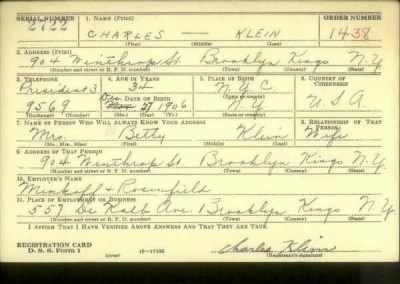 SERIAL NUMBER 1. NAME (Print) ORDER NUMBER
2722 CHARLES — KLEIN 1438
(First) (Middle) (Last)
2. ADDRESS (Print)
904 Winthrop St Brooklyn Kings N.Y.
(Number and street or R. F. D. number) (Town) (County) (State)
3. TELEPHONE 4. AGE IN YEARS 5. PLACE OF BIRTH 6. COUNTRY OF CITIZENSHIP
President 3 34 N.Y.C.
DATE OF BIRTH (Town or county)
9569 Dec 27 1906 N.Y. U.S.A
(Exchange) (Number) (Mo.) (Day) (Yr.) (State or country)
7. NAME OF PERSON WHO WILL ALWAYS KNOW YOUR ADDRESS 8. RELATIONSHIP OF THAT PERSON
Mrs. Betty Klein Wife
(Mr., Mrs., Miss) (First) (Middle) (Last)
9. ADDRESS OF THAT PERSON
904 Winthrop St. Brooklyn Kings N.Y
(Number and street or R. F. D. number) (Town) (County) (State)
10. EMPLOYER'S NAME
Minkoff & Rosenfield
11. PLACE OF EMPLOYMENT OR BUSINESS
557 De Kalb Ave Brooklyn Kings N.Y
(Number and street or R. F. D. number) (Town) (County) (State)
I AFFIRM THAT I HAVE VERIFIED ABOVE ANSWERS AND THAT THEY ARE TRUE.
REGISTRATION CARD
D. S. S. Form 1 16—17105 Charles Klein
(Registrant's signature)